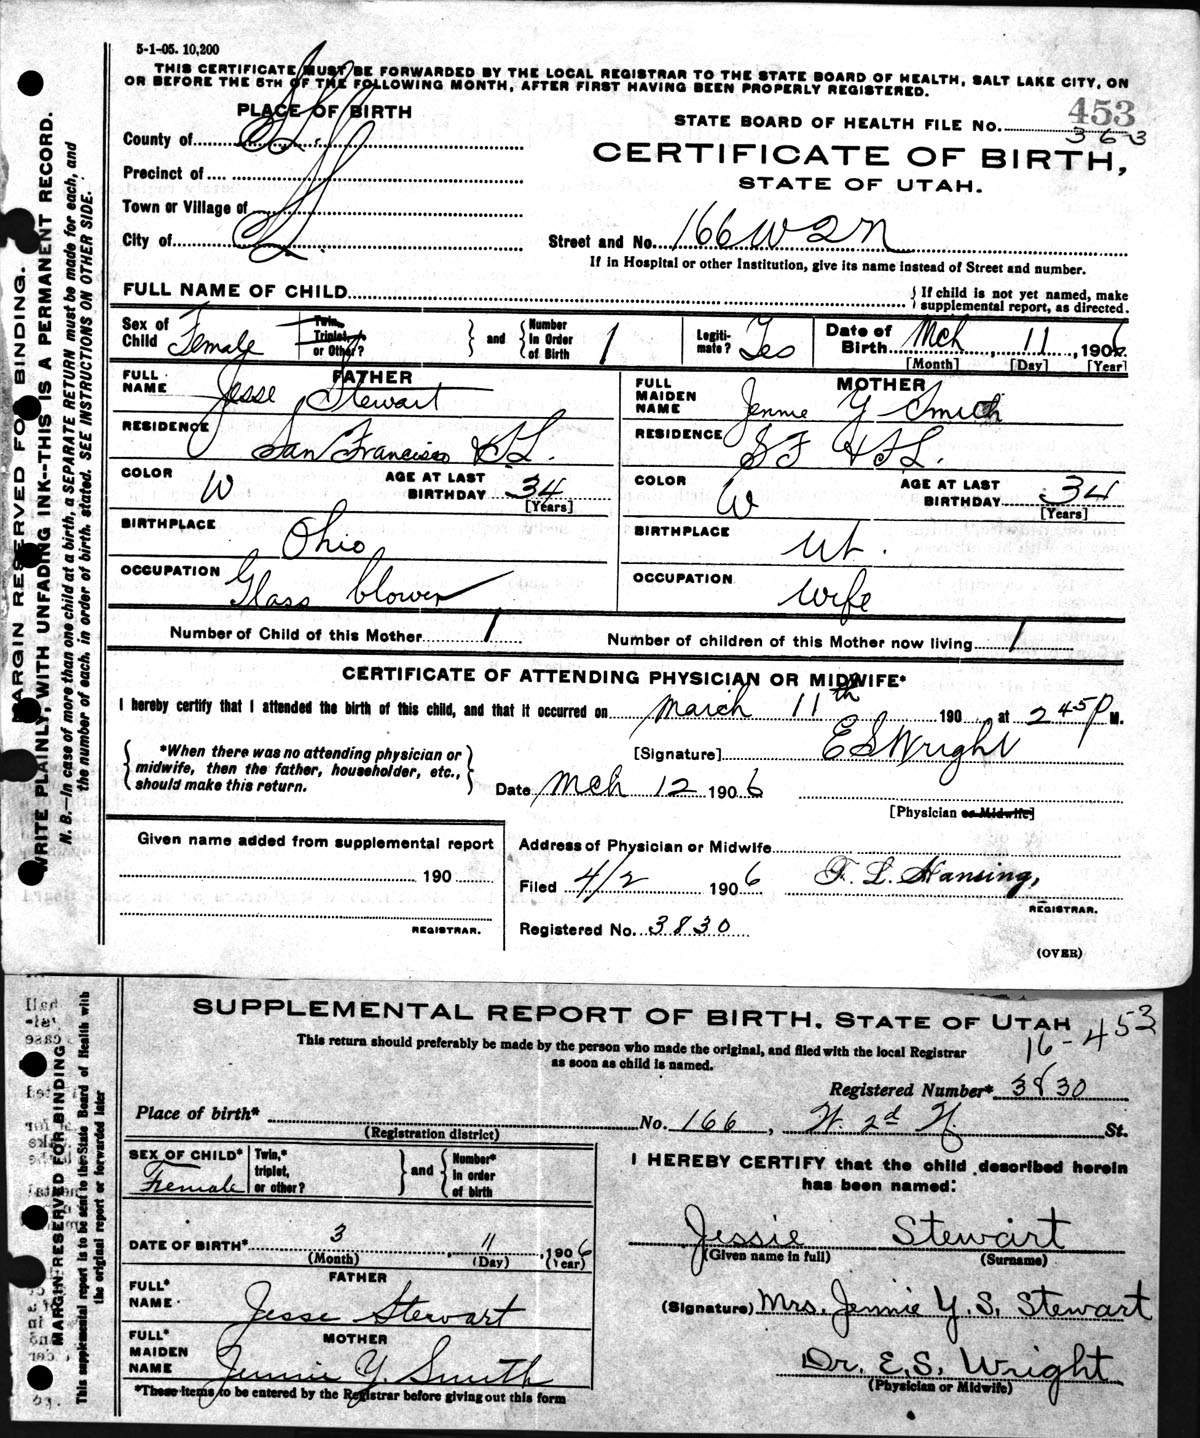 5-1-05. 10,200
THIS CERTIFICATE MUST BE FORWARDED BY THE LOCAL REGISTRAR TO THE STATE BOARD OF HEALTH, SALT LAKE CITY, ON
OR BEFORE THE 5TH OF THE FOLLOWING MONTH, AFTER FIRST HAVING BEEN PROPERLY REGISTERED.
PLACE OF BIRTH
453
STATE BOARD OF HEALTH FILE No. 363
County of S.L.
CERTIFICATE OF BIRTH,
STATE OF UTAH.
Precinct of
Town or Village of
City of S.L.
Street and No. 166 W 2 N
If in Hospital or other Institution, give its name instead of Street and number.
FULL NAME OF CHILD
{If child is not yet named, make
supplemental report, as directed.
Sex of Child Female
Twin, Triplet, or Other?
and
Number in Order of Birth 1
Legitimate? Yes
Date of Birth Mch 11, 1906
[Month] [Day] [Year]
FATHER
FULL NAME Jesse Stewart
RESIDENCE San Francisco & S.L.
COLOR W
AGE AT LAST BIRTHDAY 34
[Years]
BIRTHPLACE Ohio
OCCUPATION Glass blower
MOTHER
FULL MAIDEN NAME Jennie Y Smith
RESIDENCE S F & S L.
COLOR W
AGE AT LAST BIRTHDAY 34
[Years]
BIRTHPLACE Ut.
OCCUPATION Wife
Number of Child of this Mother 1
Number of children of this Mother now living 1
CERTIFICATE OF ATTENDING PHYSICIAN OR MIDWIFE*
I hereby certify that I attended the birth of this child, and that it occurred on March 11th 190 , at 2 45 P M.
{*When there was no attending physician or
midwife, then the father, householder, etc.,
should make this return.}
[Signature] E S Wright
Date Mch 12 1906
[Physician or Midwife]
Given name added from supplemental report
190
REGISTRAR.
Address of Physician or Midwife
Filed 4/2 1906
F. L. Hansing,
REGISTRAR.
Registered No. 3830
(OVER)
MARGIN RESERVED FOR BINDING.
WRITE PLAINLY, WITH UNFADING INK--THIS IS A PERMANENT RECORD.
N. B.—In case of more than one child at a birth, a SEPARATE RETURN must be made for each, and
the number of each, in order of birth, stated. SEE INSTRUCTIONS ON OTHER SIDE.
SUPPLEMENTAL REPORT OF BIRTH. STATE OF UTAH
16-453
This return should preferably be made by the person who made the original, and filed with the local Registrar
as soon as child is named.
Registered Number* 3830
Place of birth* No. 166, W. 2d N. St.
(Registration district)
SEX OF CHILD* Female
Twin,* triplet, or other?
and
Number* in order of birth
I HEREBY CERTIFY that the child described herein
has been named:
DATE OF BIRTH* 3, 11, 1906
(Month) (Day) (Year)
Jessie Stewart
(Given name in full) (Surname)
FATHER
FULL* NAME Jesse Stewart
(Signature) Mrs. Jennie Y. S. Stewart
MOTHER
FULL* MAIDEN NAME Jennie Y. Smith
Dr. E. S. Wright
(Physician or Midwife)
*These items to be entered by the Registrar before giving out this form
MARGIN RESERVED FOR BINDING
This supplemental report to be sent to the State Board of Health with
the original report or forwarded later